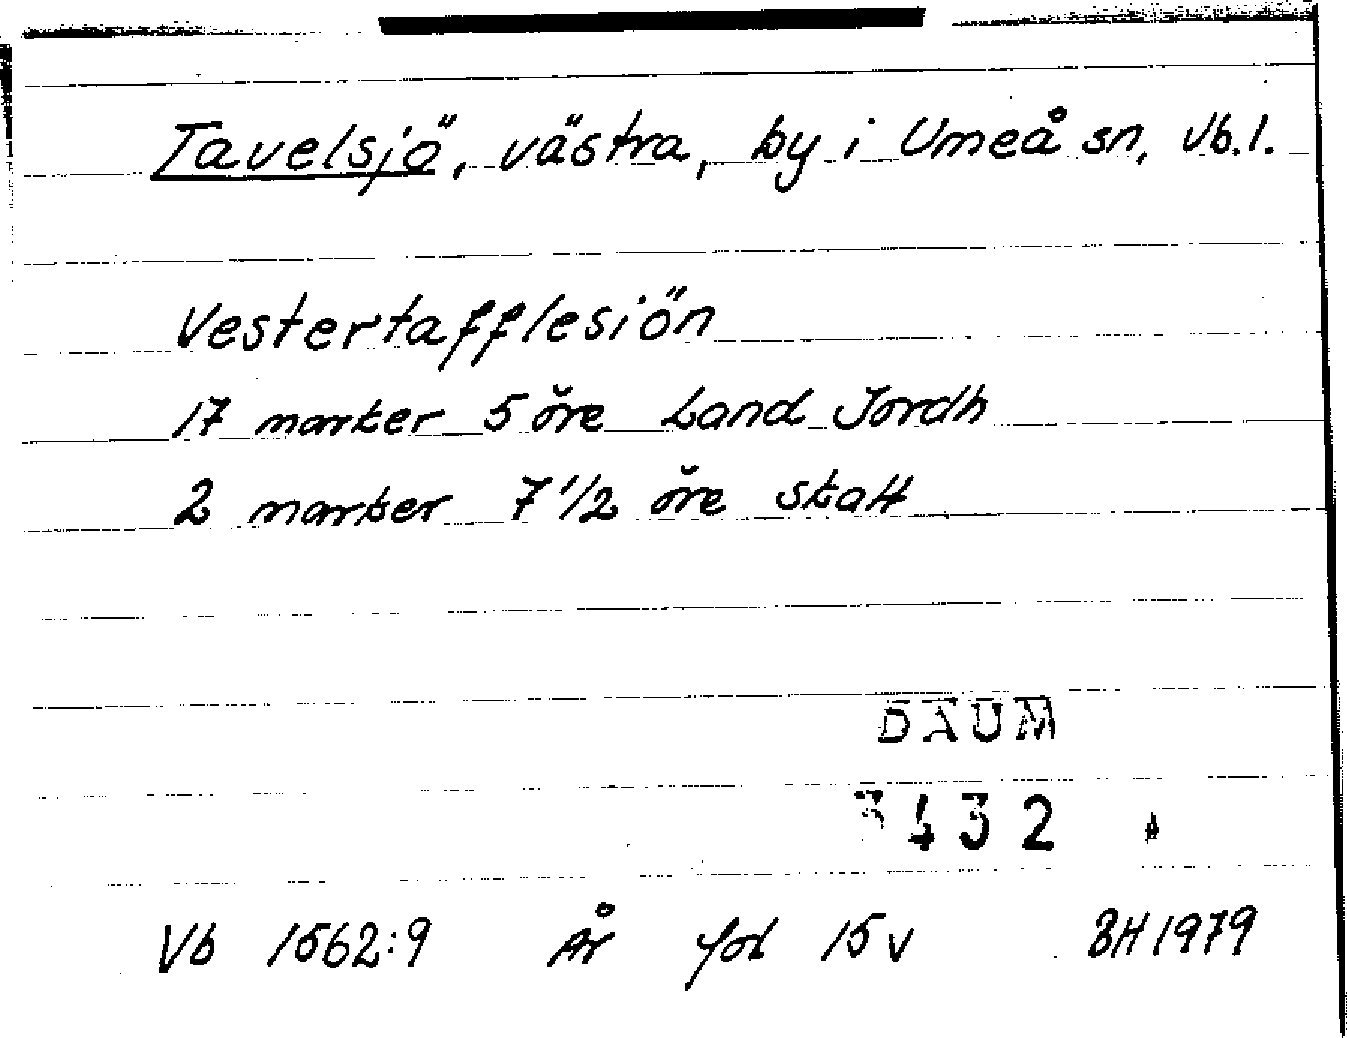 Tavelsjö, västra, by i Umeå sn, Vb.l.
Vestertafflesiön
17 marker 5 öre Land Jordh
2 marker 7 1/2 öre skatt
DAUM
3432 A
Vb 1562:9 År fol 15 v BH 1979